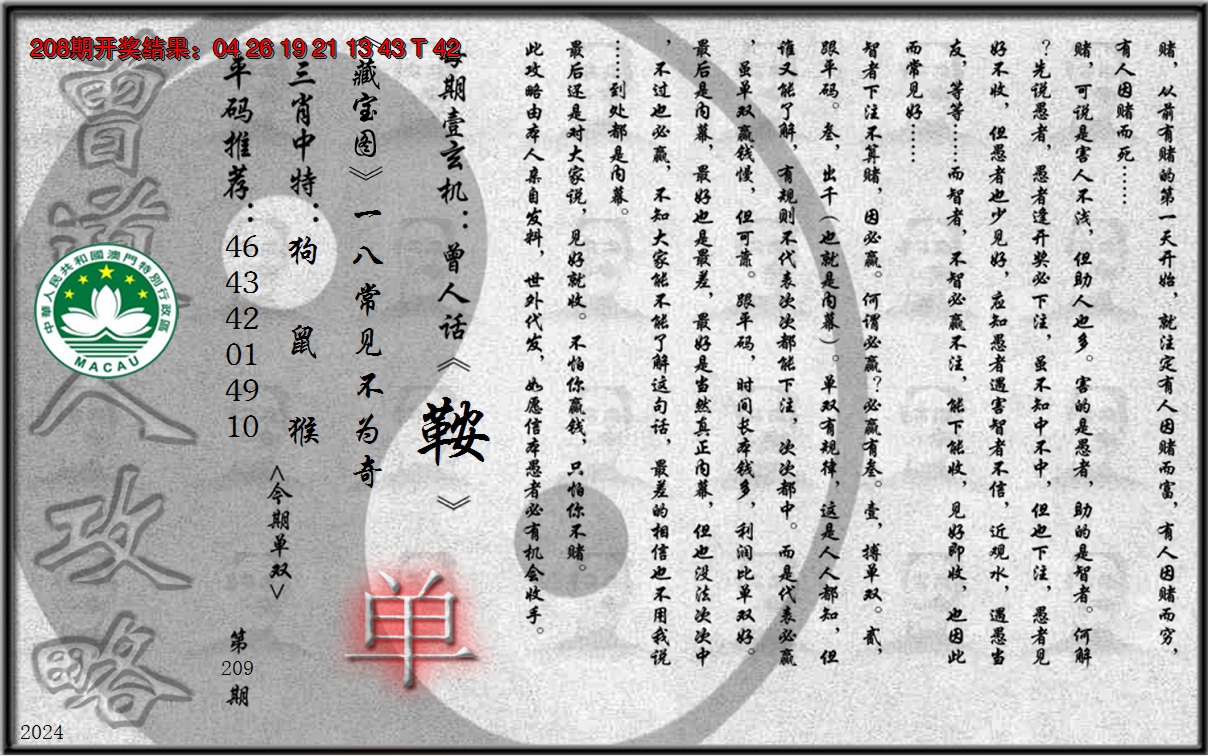 208期开奖结果：04 26 19 21 13 43 T 42
赌，从前有赌的第一天开始，就注定有人因赌而富，有人因赌而穷，
有人因赌而死……
赌，可说是害人不浅，但助人也多。害的是愚者，助的是智者。何解
？先说愚者，愚者逢开奖必下注，虽不知中不中，但也下注，愚者见
好不收，但愚者也少见好，应知愚者遇害智者不信，近观水，遇愚当
友，等等……而智者，不智必赢不注，能下能收，见好即收，也因此
而常见好……
智者下注不算赌，因必赢。何谓必赢？必赢有叁。壹，搏单双。贰，
跟平码。叁，出千（也就是内幕）。单双有规律，这是人人都知，但
谁又能了解，有规则不代表次次都能下注，次次都中。而是代表必赢
，虽单双赢钱慢，但可靠。跟平码，时间长本钱多，利润比单双好。
最后是内幕，最好也是最差，最好是当然真正内幕，但也没法次次中
，不过也必赢，不知大家能不能了解这句话，最差的相信也不用我说
……到处都是内幕。
最后还是对大家说，见好就收。不怕你赢钱，只怕你不赌。
此攻略由本人亲自发料，世外代发，如愿信本愚者必有机会收手。
每期壹玄机：曾人话《鞍》
《藏宝图》一八常见不为奇
单
三肖中特：狗 鼠 猴
<今期单双>
平码推荐：46 43 42 01 49 10
第209期
曾道人攻略
中華人民共和國澳門特別行政區
MACAU
2024